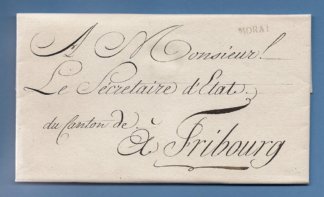 MORAT
A Monsieur!
Le Sécretaire d'Etat.
du Canton de
à Fribourg